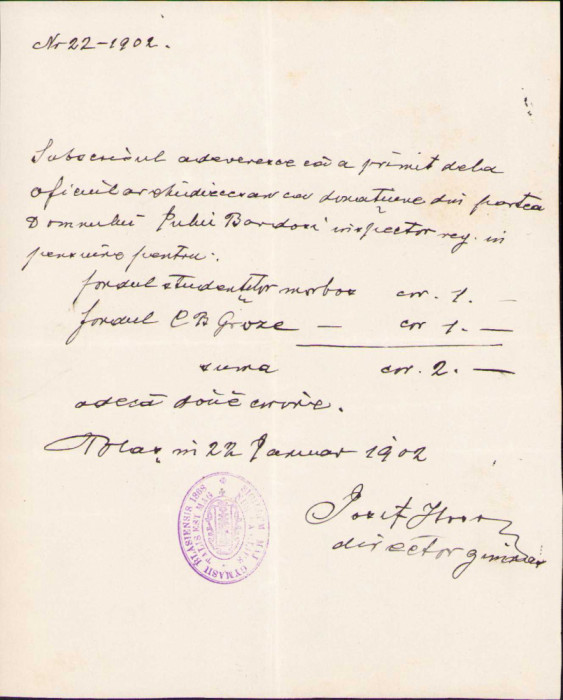 Nr 22-1902.
Subscrisul adeveresce că a primit dela
oficiul archidiecesan ca donațiune din partea
Domnului Iuliu Bardosi inspector reg. in
pensiune pentru:
fondul studenților morboși cor. 1. —
fondul C B Groze — cor 1. —
suma cor. 2. —
adecă dóue coróne.
Blaș, in 22 Januar 1902
Iosif Hossu
director gimnas
SIGILLUM MAI. GYMASII BLASIENSIS 1868